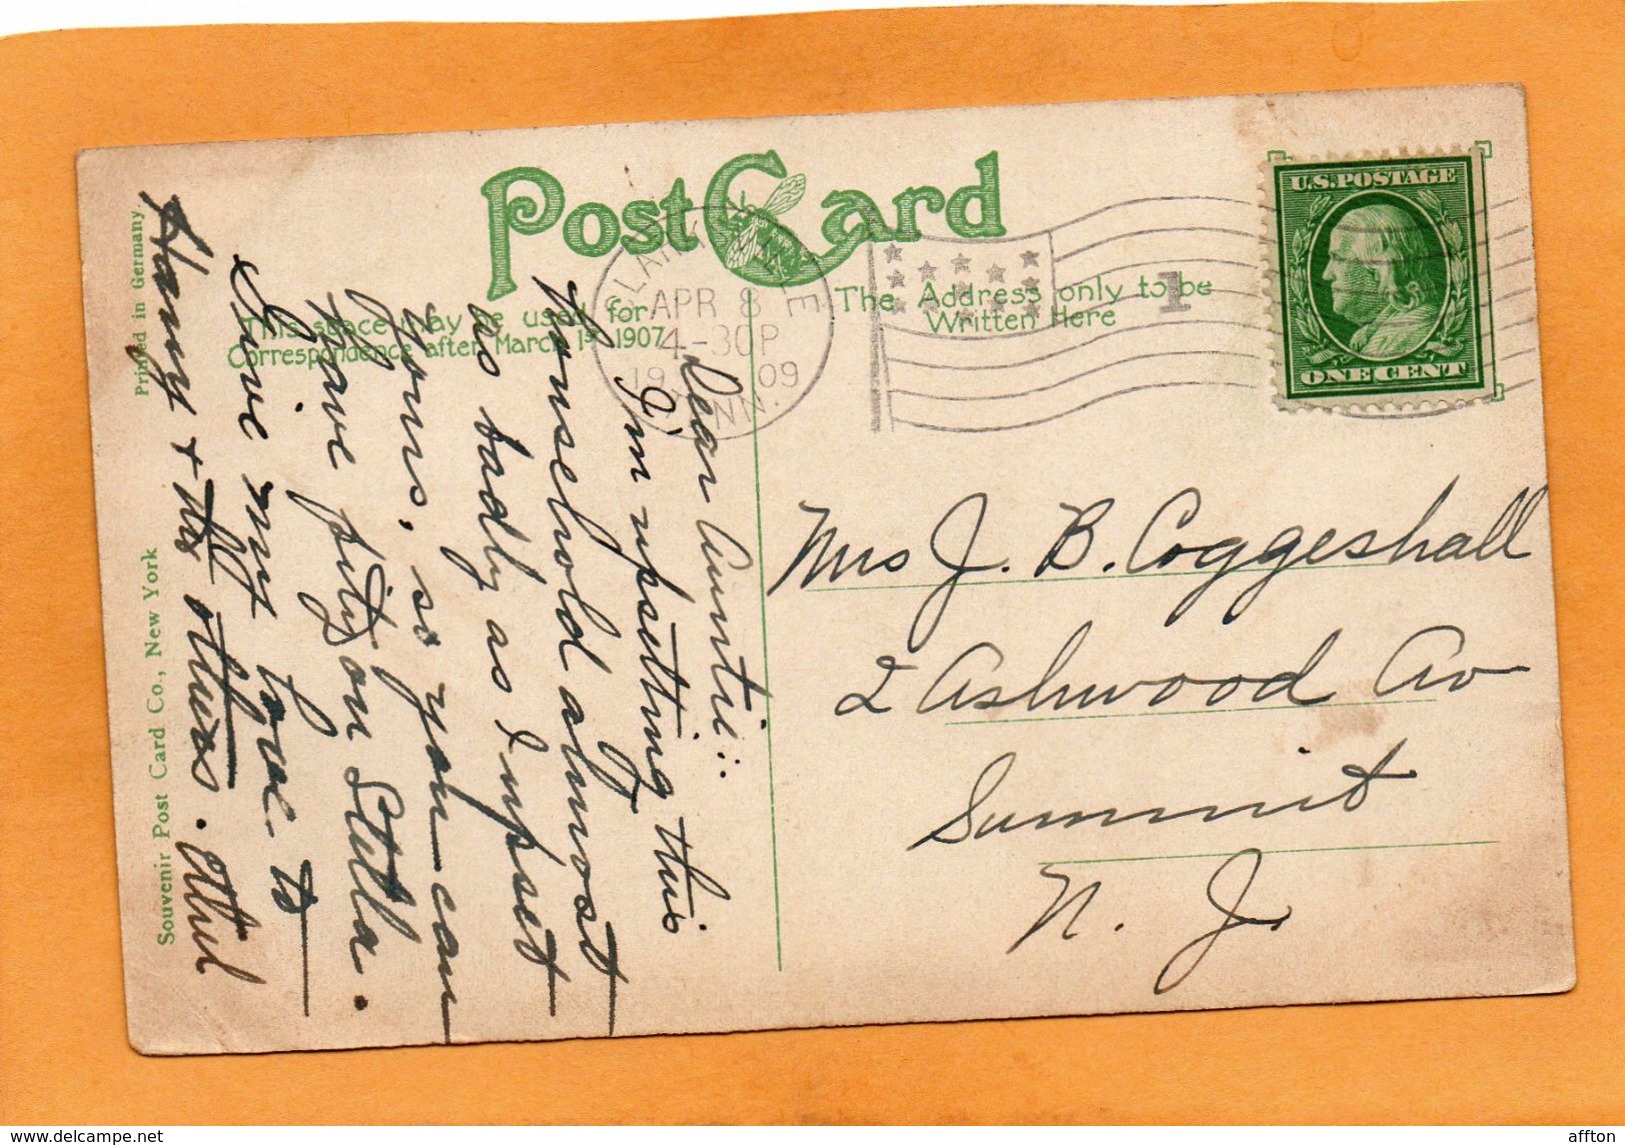 Post Card
This space may be used for
Correspondence after March 1st 1907
The Address only to be
Written Here
CLARKSVILLE
APR 8
4-30P
1909
TENN.
1
U.S. POSTAGE
ONE CENT
Printed in Germany
Souvenir Post Card Co., New York
Dear Auntie:
I'm upsetting this
household almost
as badly as I upset
yours, so you can
have pity on Stella.
Give my love to
Harry + the others.
Mrs J. B. Coggeshall
2 Ashwood Av
Summit
N. J.
affton
delcampe.net